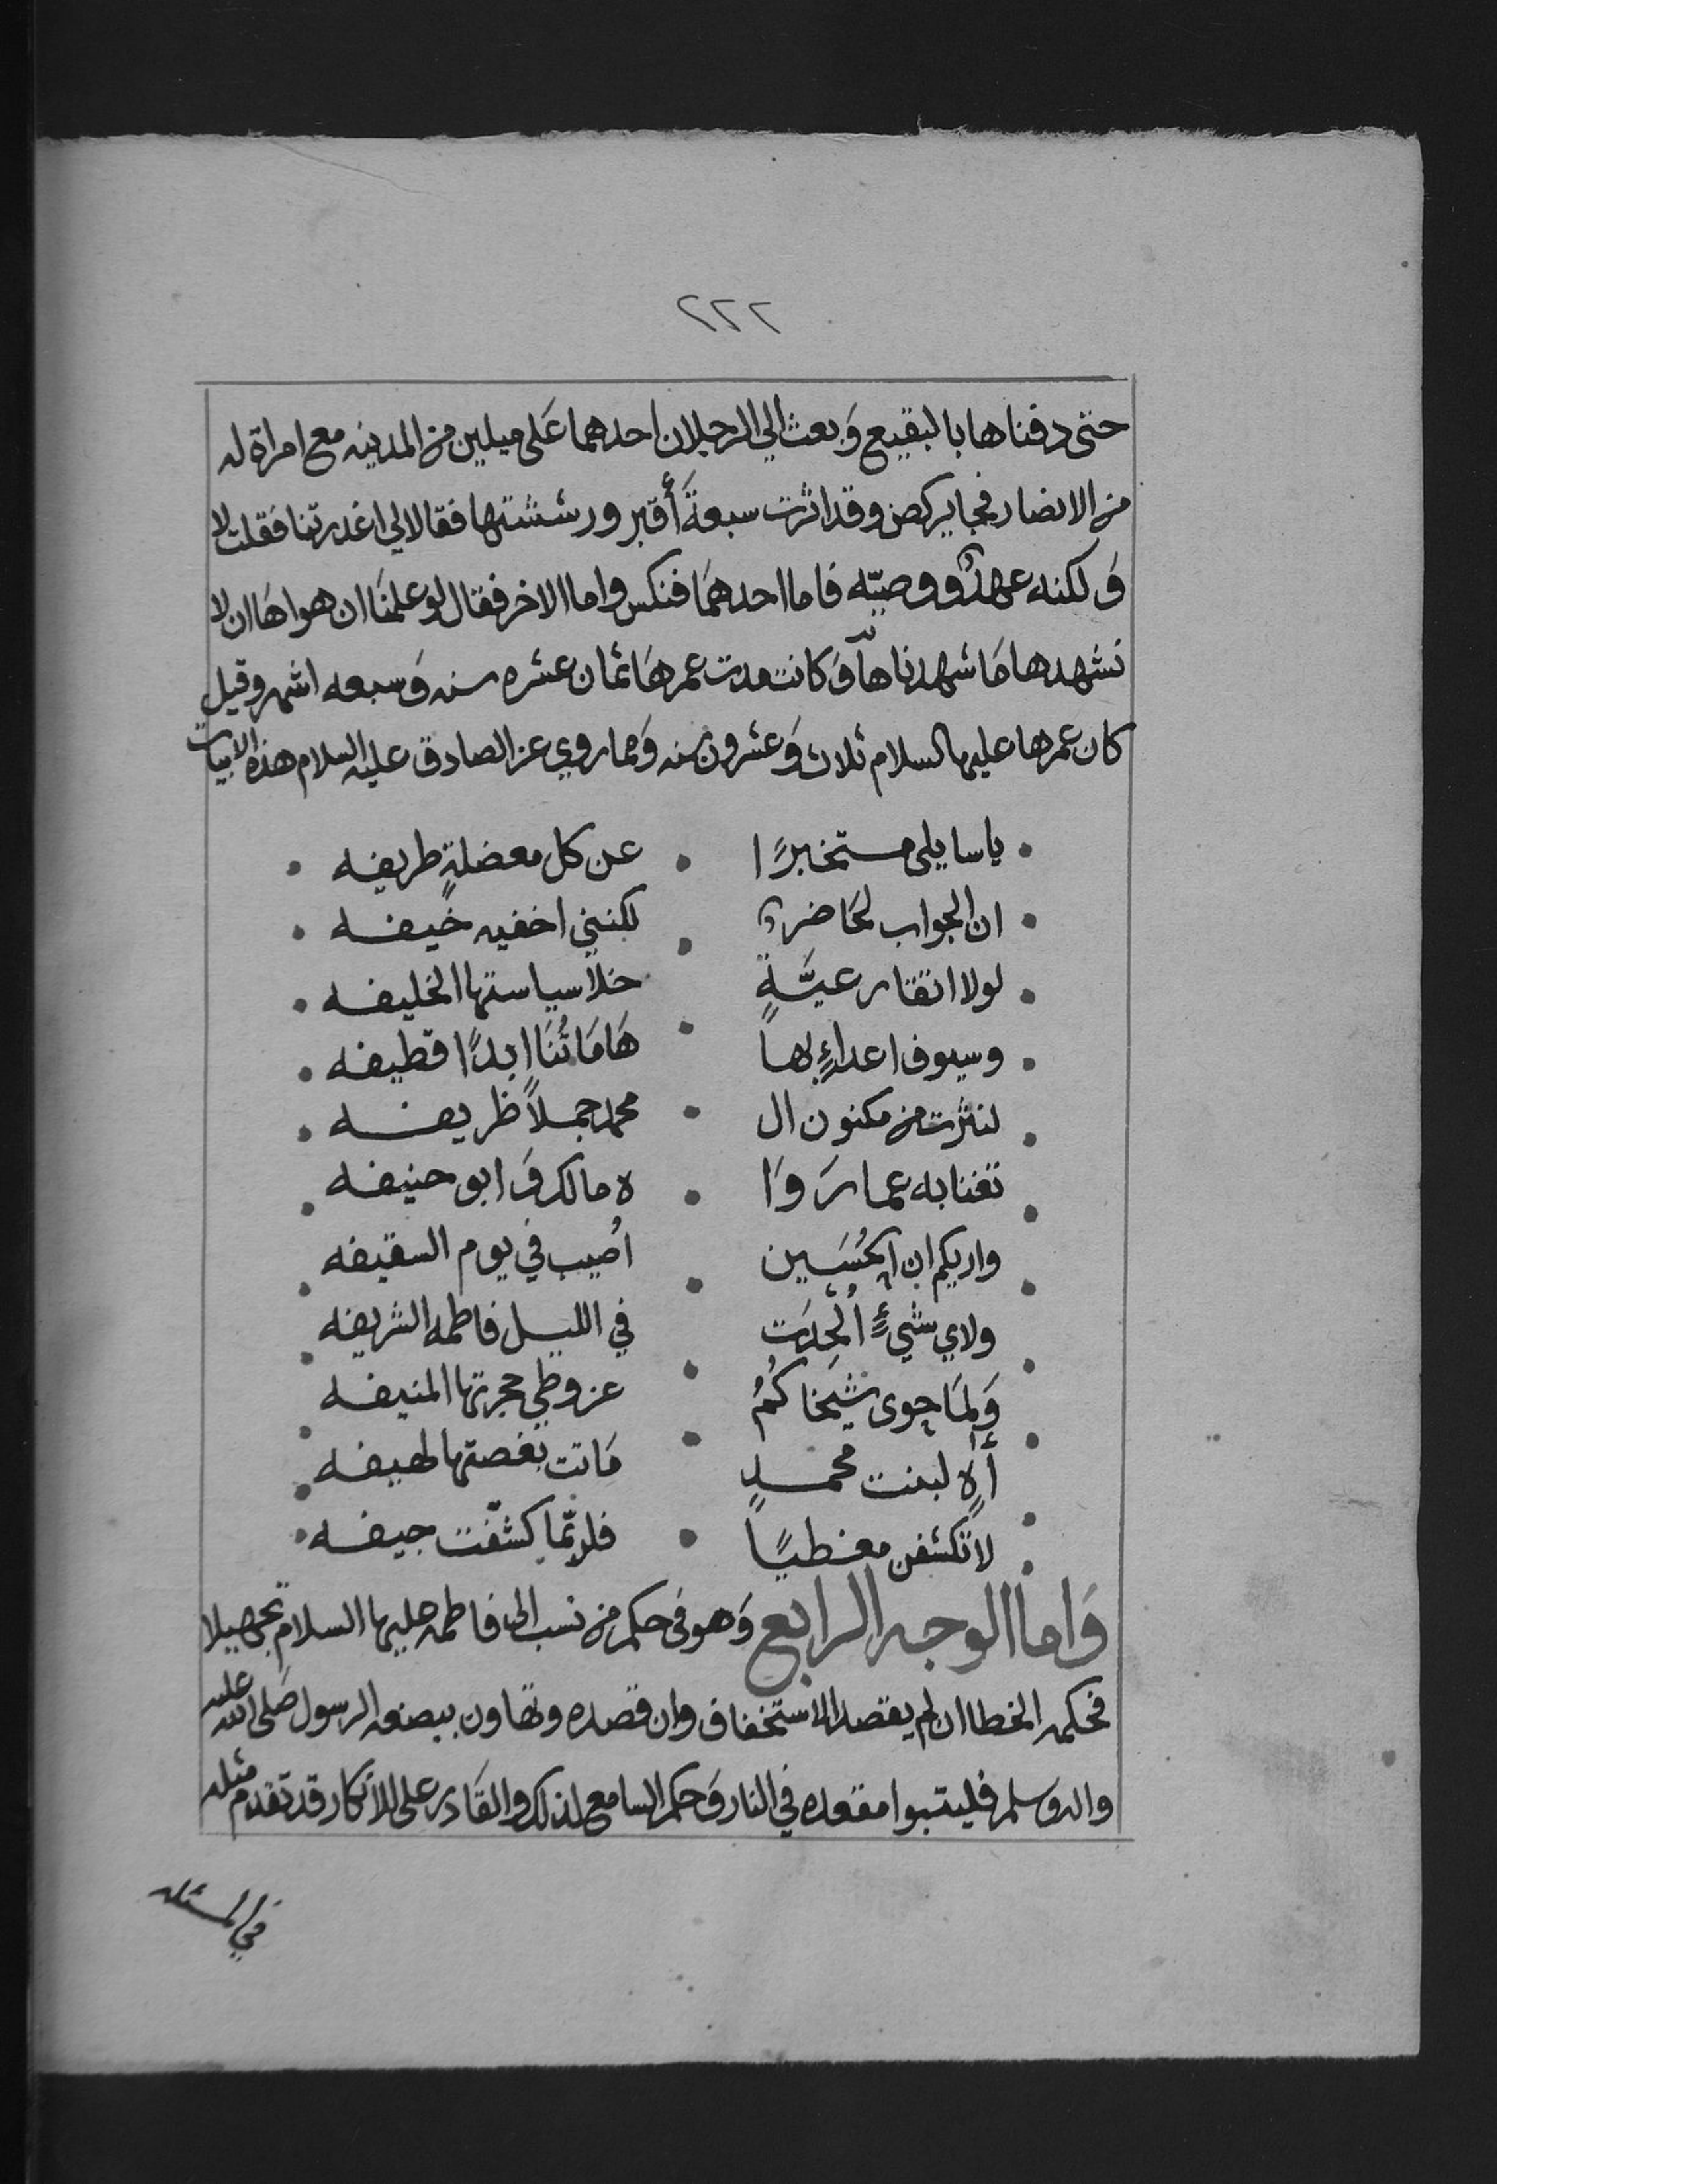 ٢٢٢
حتى دفناها بالبقيع وَبعث الي الرجلان احدهما عَلى ميلين من المدينه مع امراة له
من الانصار فجا يركض وقد اثرت سبعةَ أقبر ورششتها فقالا لي اغدرتنا فقلت لا
وَلكنه عهدٌ ووصيّه فاما احدهمَا فنكس واما الاخر فقال لو علمنَا ان هواهَا ان لا
نشهدها مَا شهدناها وَكانت مدت عمرهَا ثمان عشره سنه وَسبعه اشهر وقيل
كان عمرها عليها السلام ثلاث وَعشرون سنه وَمما روي عن الصادق عليه السلام هذه الابيات
ياسايلى مستخبرًا • عن كل معضلةٍ طريفه •
ان الجواب لحَاضرٌ • لكنني اخفيه خيفه •
لولا اتقا رعيَّةٍ • خلا سياستها الخليفه •
وسيوف اعداءٍ بها • هَامَاتُنَا ابدًا قطيفه •
لنثرت من مكنون ال • محمد جملاً ظريفه •
تغنا به عما رَوَا • ه مالك وَابو حنيفه •
واريكم ان الحُسَين • اُصيب في يوم السقيفه •
ولاي شيءٍ اُلحِدَت • في الليل فاطمه الشريفه •
وَلمَا حوى شيَخاكُمُ • عن وطي حجرتها المنيفه •
أَاهٍ لبنت محمدٍ • مَاتت بغصتها لهيفه •
لا تكشفن مغطيًا • فلربّما كشّفت جيفه •
وَاما الوجه الرابع وَهو فى حكم من نسب الى فاطمه عليها السلام تجهيلا
فحكمه الخطا ان لم يقصد الاستخفاف وان قصده وتهاون ببضعه الرسول صَلى الله عليه
واله وَسلم فليتبوا مقعده في النار وَحكم السامع لذلك والقَادر على الانكار قد تقدم مثله
في المسئله